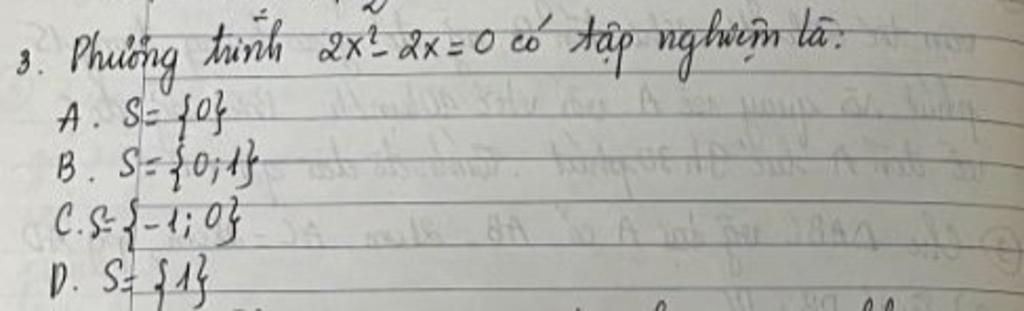 3. Phương trình 2x² - 2x = 0 có tập nghiệm là:
A. S = {0}
B. S = {0; 1}
C. S = {-1; 0}
D. S = {1}